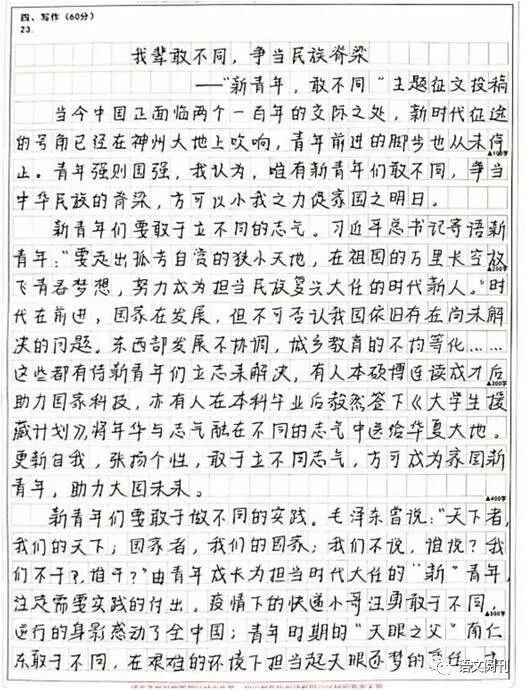 四、写作（60分）
23.
我辈敢不同，争当民族脊梁
——“新青年，敢不同”主题征文投稿
当今中国正面临两个一百年的交际之处，新时代征途
的号角已经在神州大地上吹响，青年前进的脚步也从未停
▲100字
止。青年强则国强，我认为，唯有新青年们敢不同，争当
中华民族的脊梁，方可以小我之力促家国之明日。
新青年们要敢于立不同的志气。习近平总书记寄语新
青年：“要走出孤芳自赏的狭小天地，在祖国的万里长空放
▲200字
飞青春梦想，努力成为担当民族复兴大任的时代新人。”时
代在前进，国家在发展，但不可否认我国依旧有存在尚未解
决的问题。东西部发展不协调，城乡教育的不均等化……
▲300字
这些都有待新青年们立志来解决，有人本硕博连读成才后
助力国家科技，亦有人在本科毕业后毅然签下《大学生援
藏计划》，将年华与志气融在不同的志气中送给华夏大地。
更新自我，张扬个性，敢于立不同志气，方可成为家国新
青年，助力大国未来。
▲400字
新青年们要敢于做不同的实践。毛泽东曾说：“天下者，
我们的天下；国家者，我们的国家；我们不说，谁说？我
们不干？，谁干？”由青年成长为担当时代大任的“新”青年，
注定需要实践的付出。疫情下的快递小哥汪勇敢于不同，
▲500字
逆行的身影感动了全中国；青年时期的“天眼之父”南仁
东敢于不同，在艰难的环境下担当起天眼逐梦的责任，
语文周刊